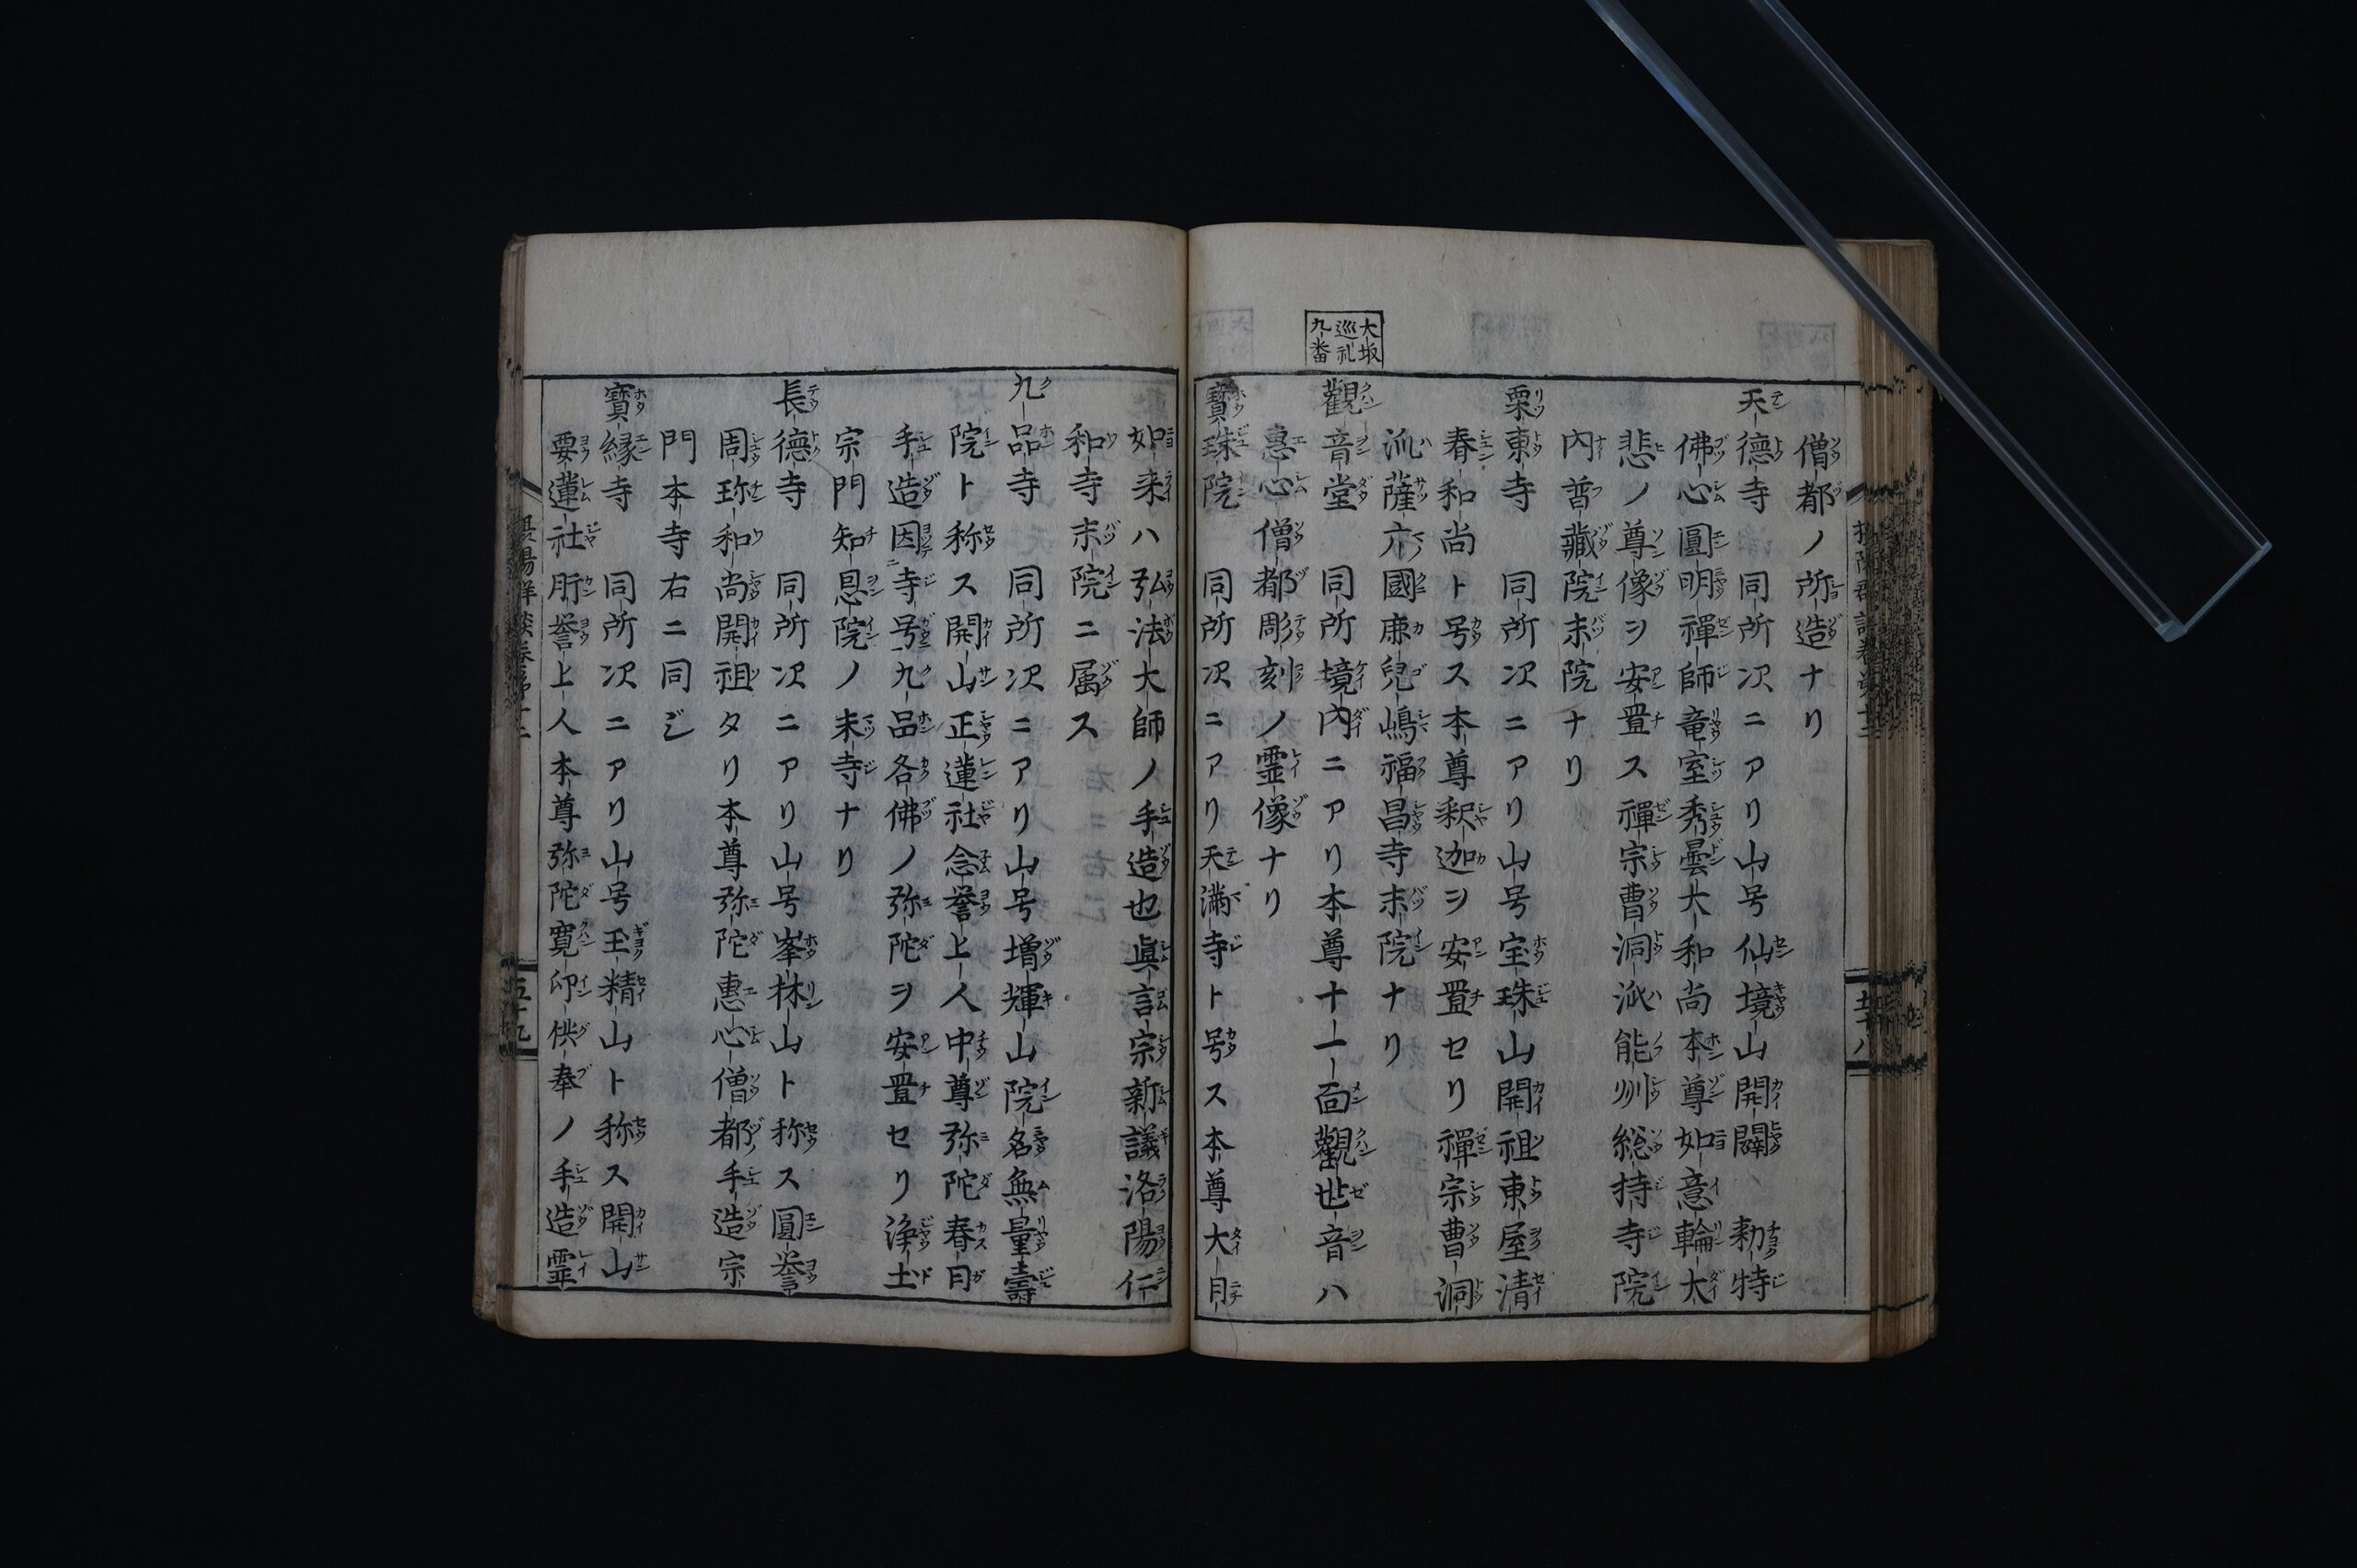 僧都ノ所造ナリ
天德寺　同所次ニアリ山号仙境山開闢　勅特
佛心圓明禪師竜室秀曇大和尚本尊如意輪大
悲ノ尊像ヲ安置ス禪宗曹洞派能州総持寺院
内普藏院末院ナリ
栗東寺　同所次ニアリ山号宝珠山開祖東屋清
春和尚ト号ス本尊釈迦ヲ安置セリ禪宗曹洞
派薩六國麻兒嶋福昌寺末院ナリ
大坂
巡礼
九番
觀音堂　同所境内ニアリ本尊十一面觀世音ハ
惠心僧都彫刻ノ霊像ナリ
寶珠院　同所次ニアリ天満寺ト号ス本尊大日
如来ハ弘法大師ノ手造也眞言宗新議洛陽仁
和寺末院ニ属ス
九品寺　同所次ニアリ山号増輝山院名無量壽
院ト称ス開山正蓮社念誉上人中尊弥陀春日
手造因寺号九品各佛ノ弥陀ヲ安置セリ浄土
宗門知恩院ノ末寺ナリ
長德寺　同所次ニアリ山号峯林山ト称ス圓誉
周珎和尚開祖タリ本尊弥陀惠心僧都手造宗
門本寺右ニ同じ
寶縁寺　同所次ニアリ山号玉精山ト称ス開山
要蓮社肝誉上人本尊弥陀寛印供奉ノ手造霊
五十九